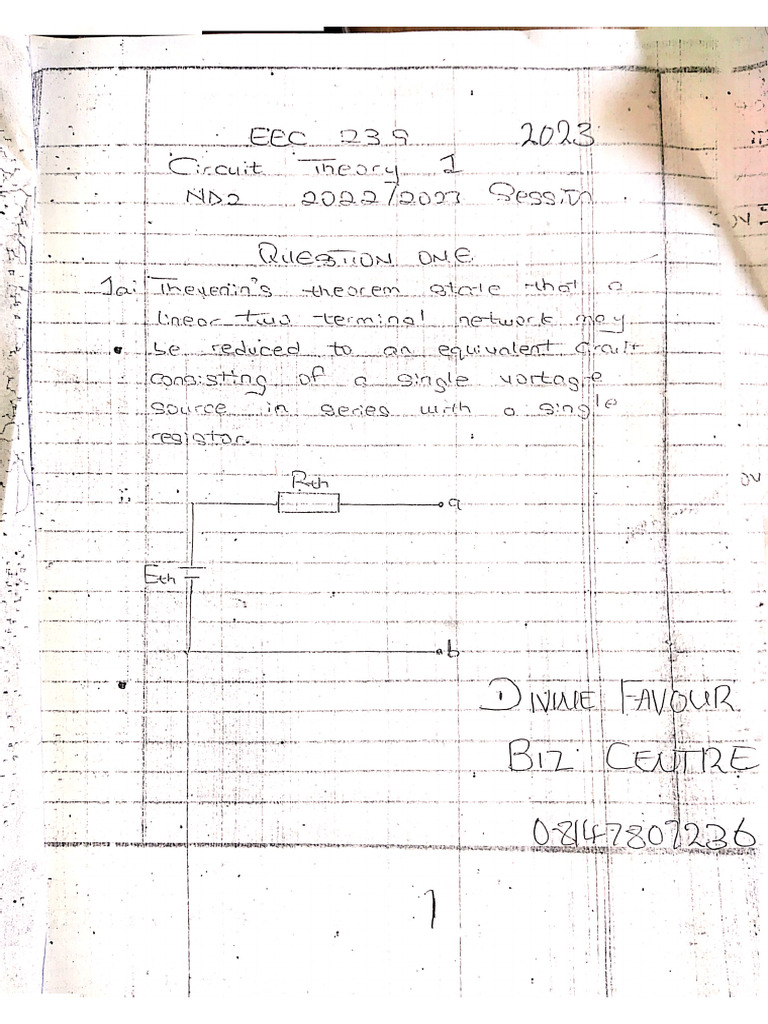 EEC 239 2023
Circuit Theory I
ND2 2022/2023 Session
QUESTION ONE
1ai Thevenin's theorem state that a
linear two terminal network may
be reduced to an equivalent circuit
consisting of a single vortage
source in series with a single
resistor.
Rth
ii. a
Eth
b
DIVINE FAVOUR
BIZ CENTRE
08147807236
1